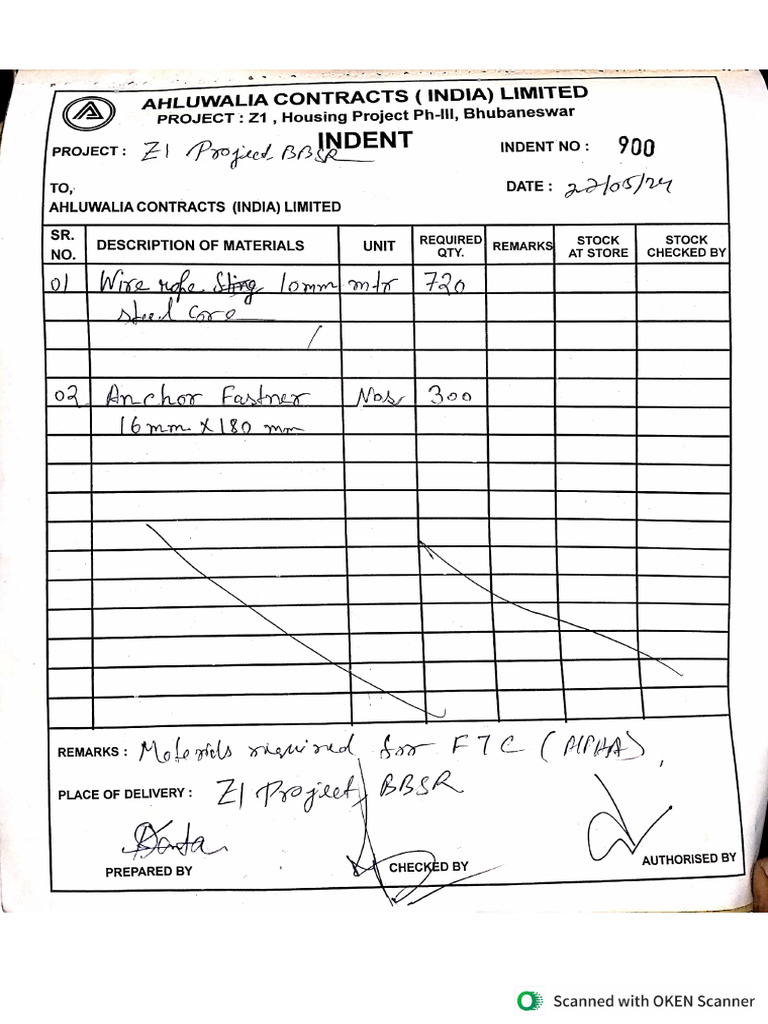 AHLUWALIA CONTRACTS ( INDIA) LIMITED
PROJECT : Z1 , Housing Project Ph-III, Bhubaneswar
INDENT
PROJECT : Z1 Project, BBSR
INDENT NO : 900
TO,
DATE : 22/05/24
AHLUWALIA CONTRACTS (INDIA) LIMITED
SR. NO. DESCRIPTION OF MATERIALS UNIT REQUIRED QTY. REMARKS STOCK AT STORE STOCK CHECKED BY
01 Wire rope 10mm mtr 720
steel Core
02 Anchor Fastner Nos 300
16mm x 180 mm
REMARKS : Materials required for F7C
PLACE OF DELIVERY : Z1 Project, BBSR
PREPARED BY CHECKED BY AUTHORISED BY
Scanned with OKEN Scanner